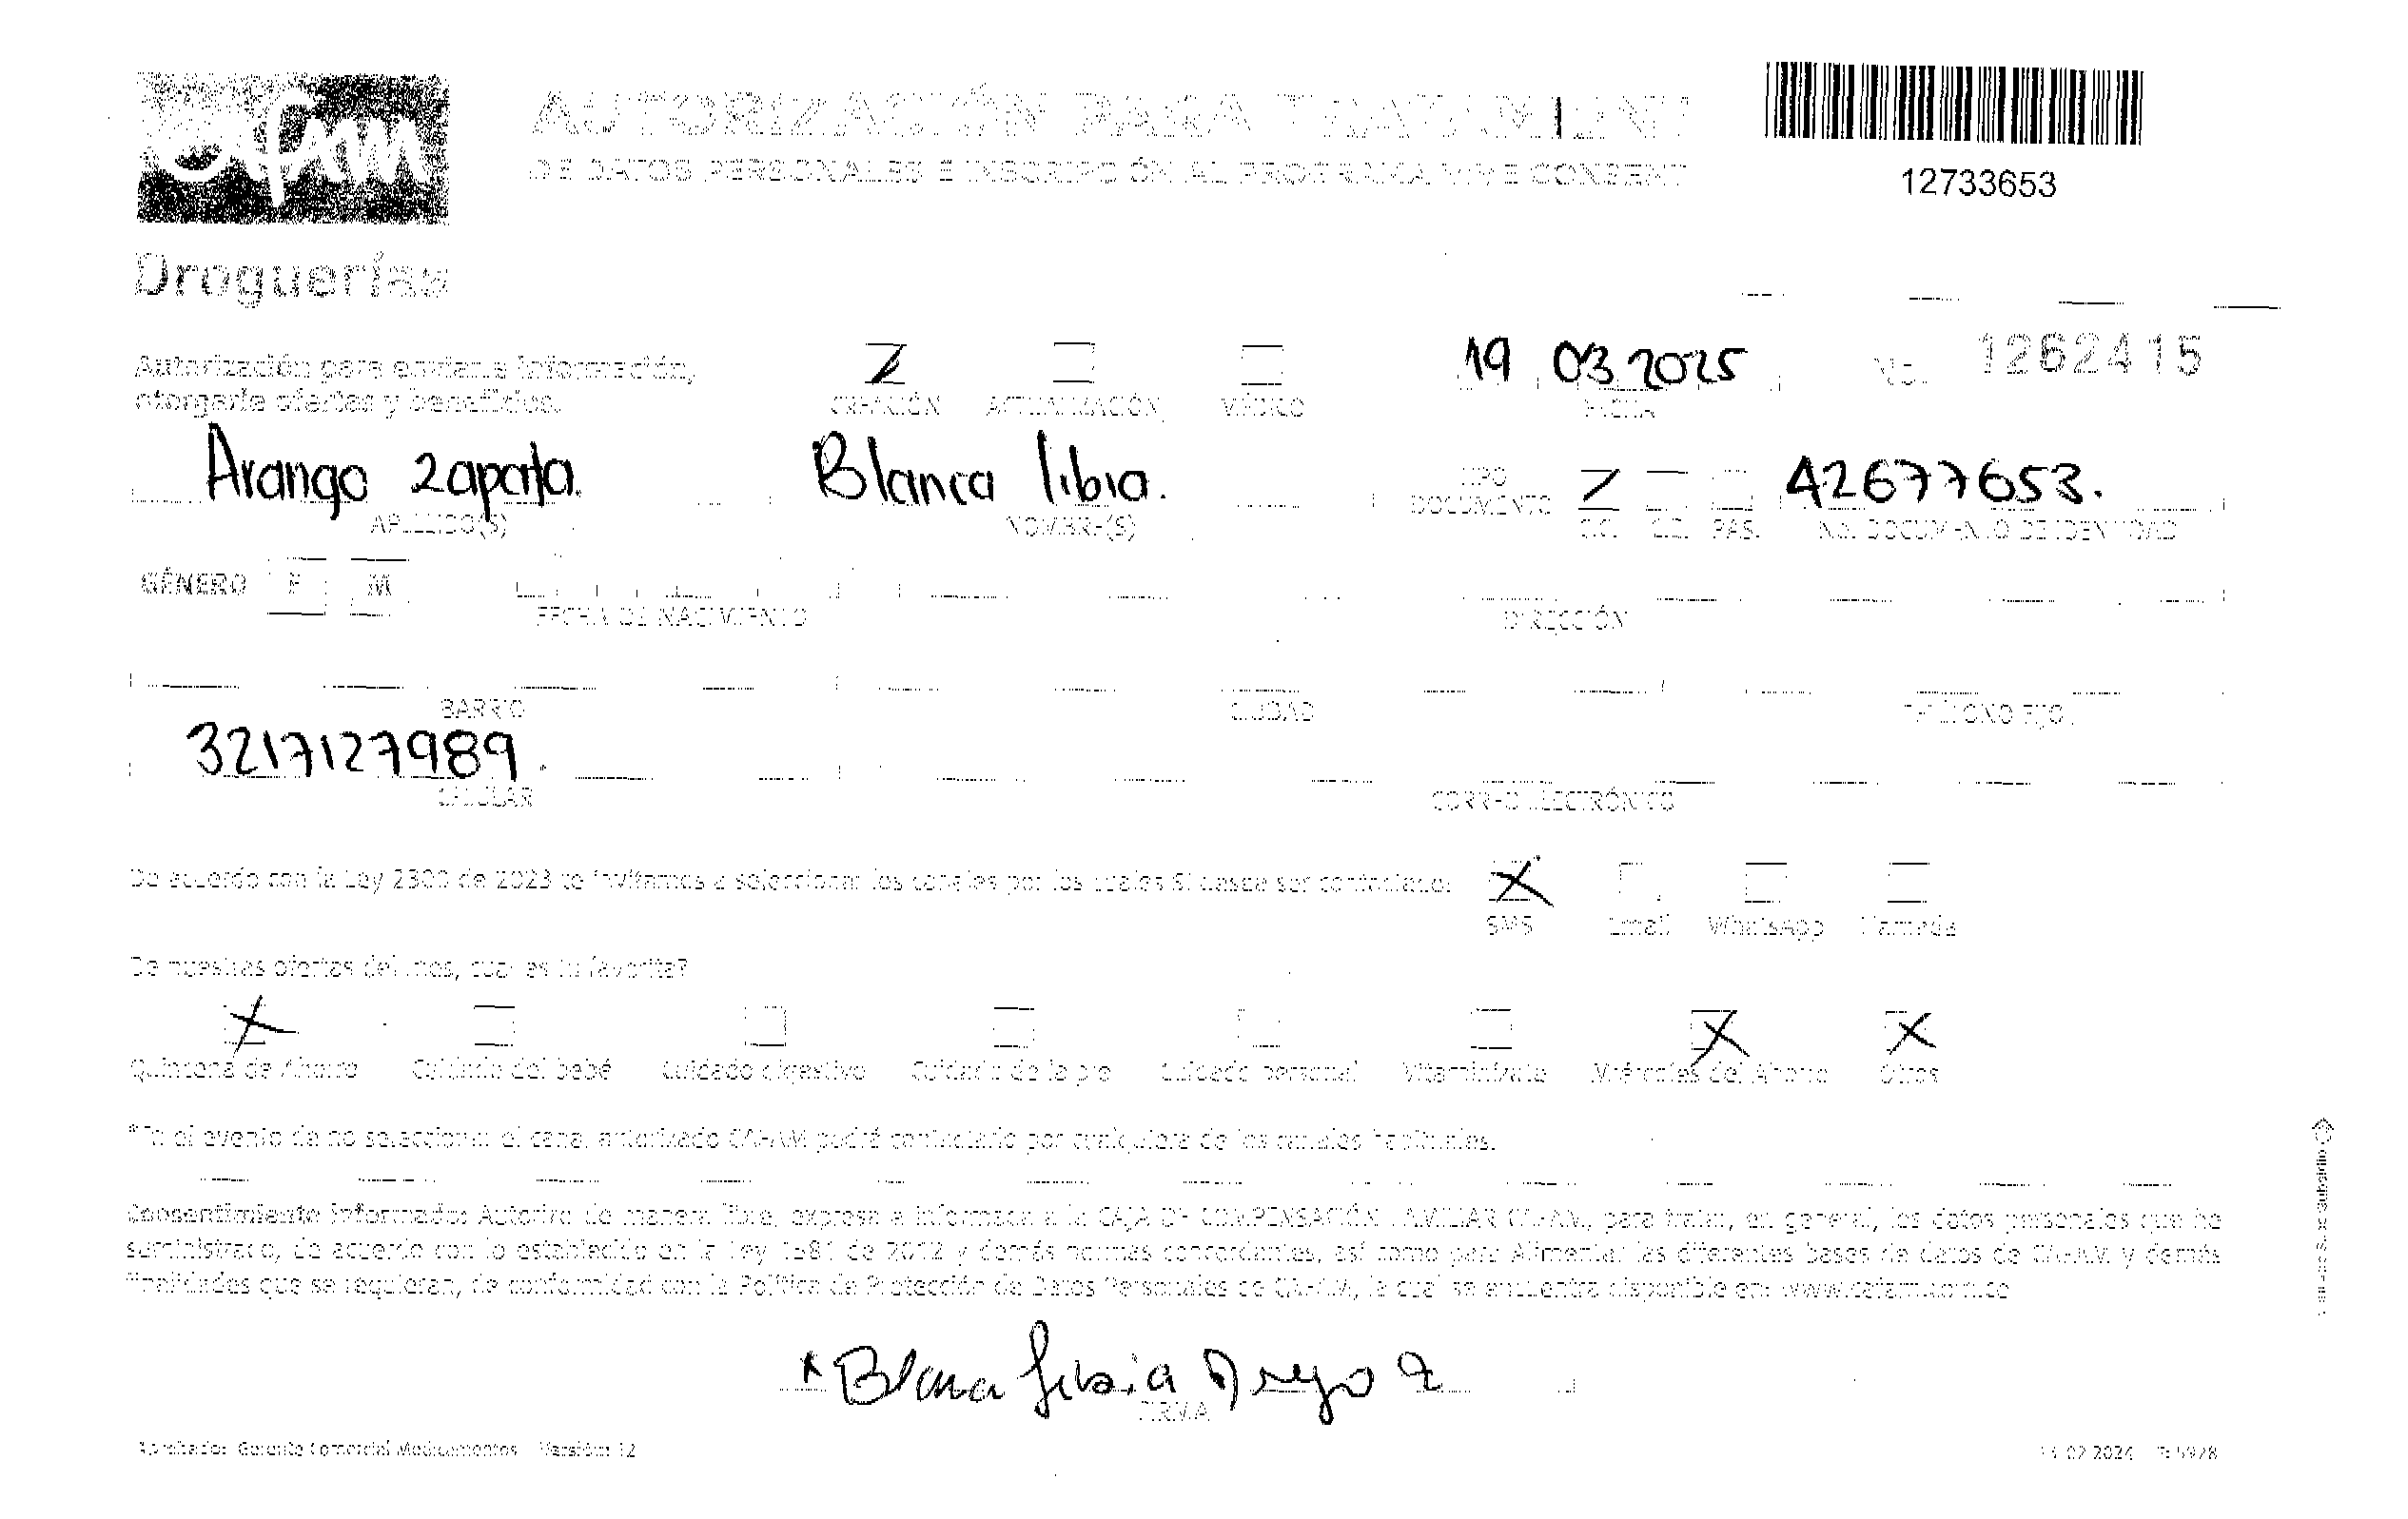 Cafam
AUTORIZACIÓN PARA TRATAMIENT
DE DATOS PERSONALES E INSCRIPCIÓN AL PROGRAMA VIVE CONSENT
12733653
Droguerías
Autorización para enviarle información,
otorgarle ofertas y beneficios.
CREACIÓN ACTUALIZACIÓN MÉDICO
19 03 2025
FECHA
No. 1262415
Arango Zapata.
APELLIDO(S)
Blanca libia.
NOMBRE(S)
TIPO
DOCUMENTO
C.C. C.E. PAS.
42677653.
NO. DOCUMENTO DE IDENTIDAD
GÉNERO F M
FECHA DE NACIMIENTO
DIRECCIÓN
BARRIO
CIUDAD
TELÉFONO FIJO
3217127989.
CELULAR
CORREO ELECTRÓNICO
De acuerdo con la Ley 2300 de 2023 te invitamos a seleccionar los canales por los cuales SI desea ser contactado:
SMS Email WhatsApp Llamada
De nuestras ofertas del mes, cuál es tu favorita?
Quincena de Ahorro Cuidado del bebé Cuidado digestivo Cuidado de la piel Cuidado personal Vitamínizate Miércoles del Ahorro Otros
*En el evento de no seleccionar el canal autorizado CAFAM podrá contactarlo por cualquiera de los canales habituales.
Consentimiento informado: Autorizo de manera libre, expresa e informada a la CAJA DE COMPENSACIÓN FAMILIAR CAFAM, para tratar, en general, los datos personales que he
suministrado, de acuerdo con lo establecido en la Ley 1581 de 2012 y demás normas concordantes, así como para Alimentar las diferentes bases de datos de CAFAM y demás
finalidades que se requieran, de conformidad con la Política de Protección de Datos Personales de CAFAM, la cual se encuentra disponible en: www.cafam.com.co
* Blanca Libia Arango Z
FIRMA
Aprobado: Gerente Comercial Medicamentos Versión: 12